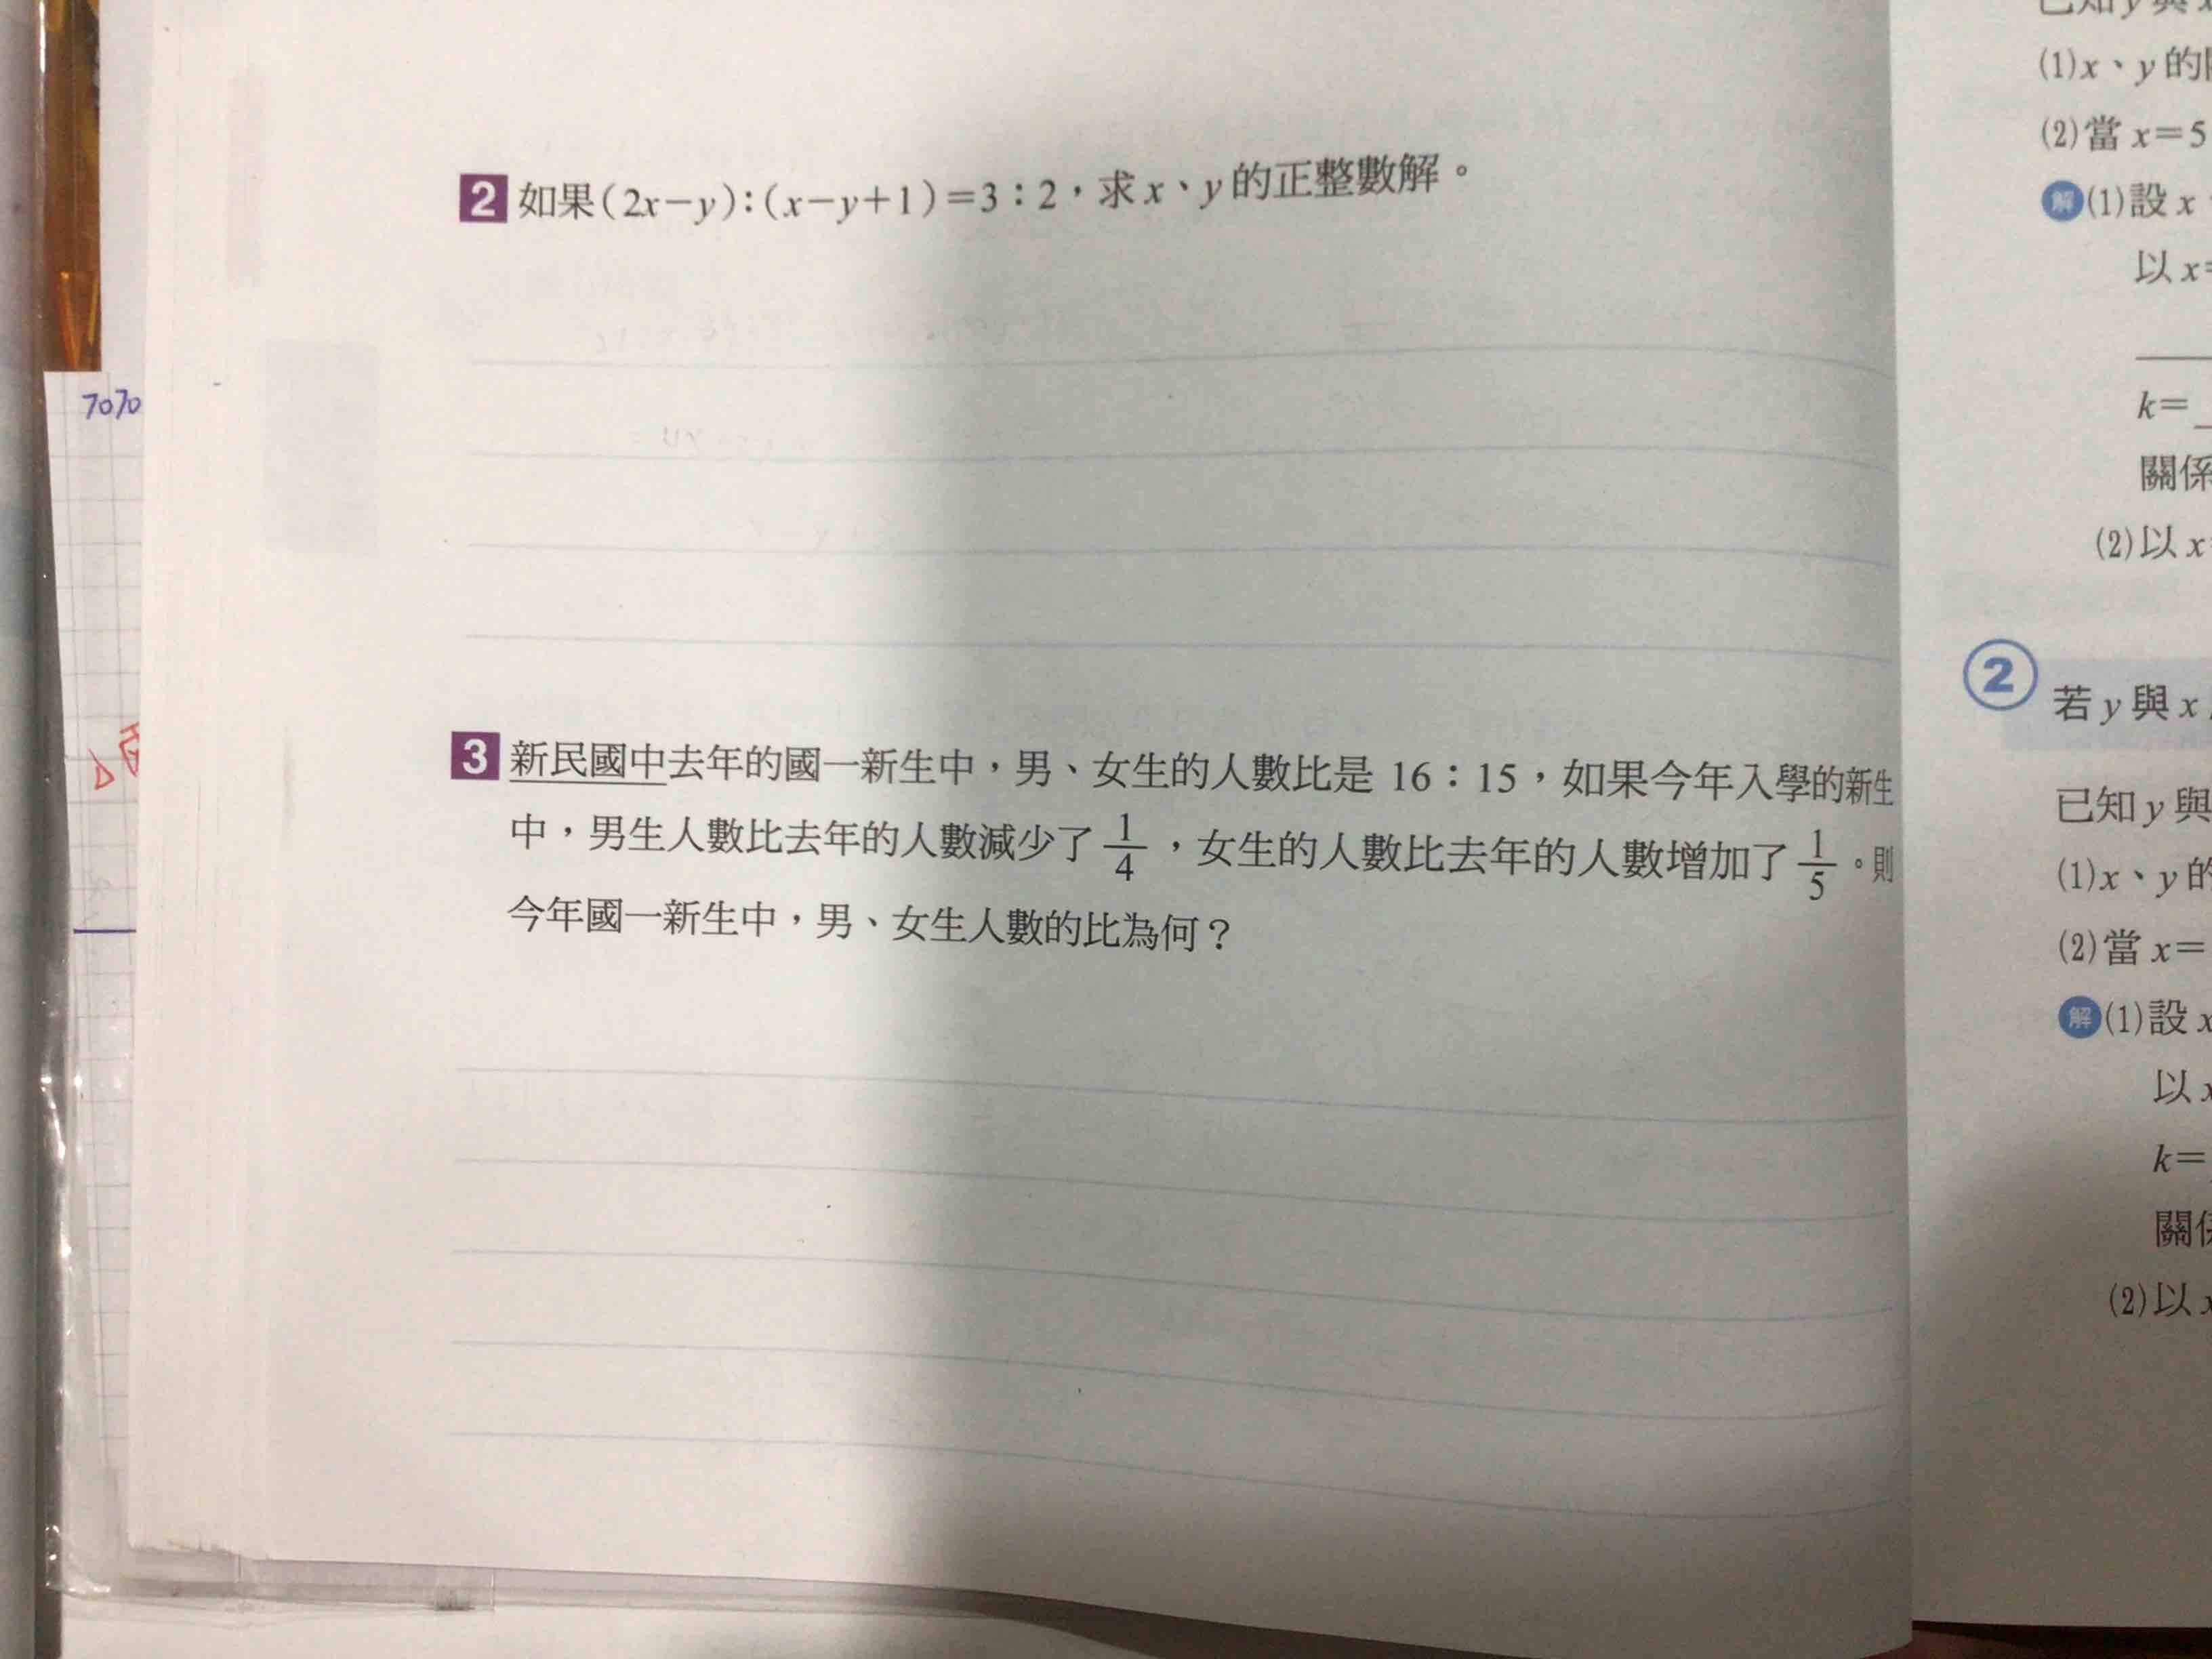 7070
2 如果(2x-y):(x-y+1)=3:2,求x、y的正整數解。
3 新民國中去年的國一新生中,男、女生的人數比是 16:15,如果今年入學的新生
中,男生人數比去年的人數減少了 1/4 ,女生的人數比去年的人數增加了 1/5 。則
今年國一新生中,男、女生人數的比為何?
已知y與
(1)x、y的
(2)當x=5
解(1)設x
以x=
k=
關係
(2)以x
2 若y與x
已知y與
(1)x、y的
(2)當x=
解(1)設x
以x
k=
關係
(2)以x